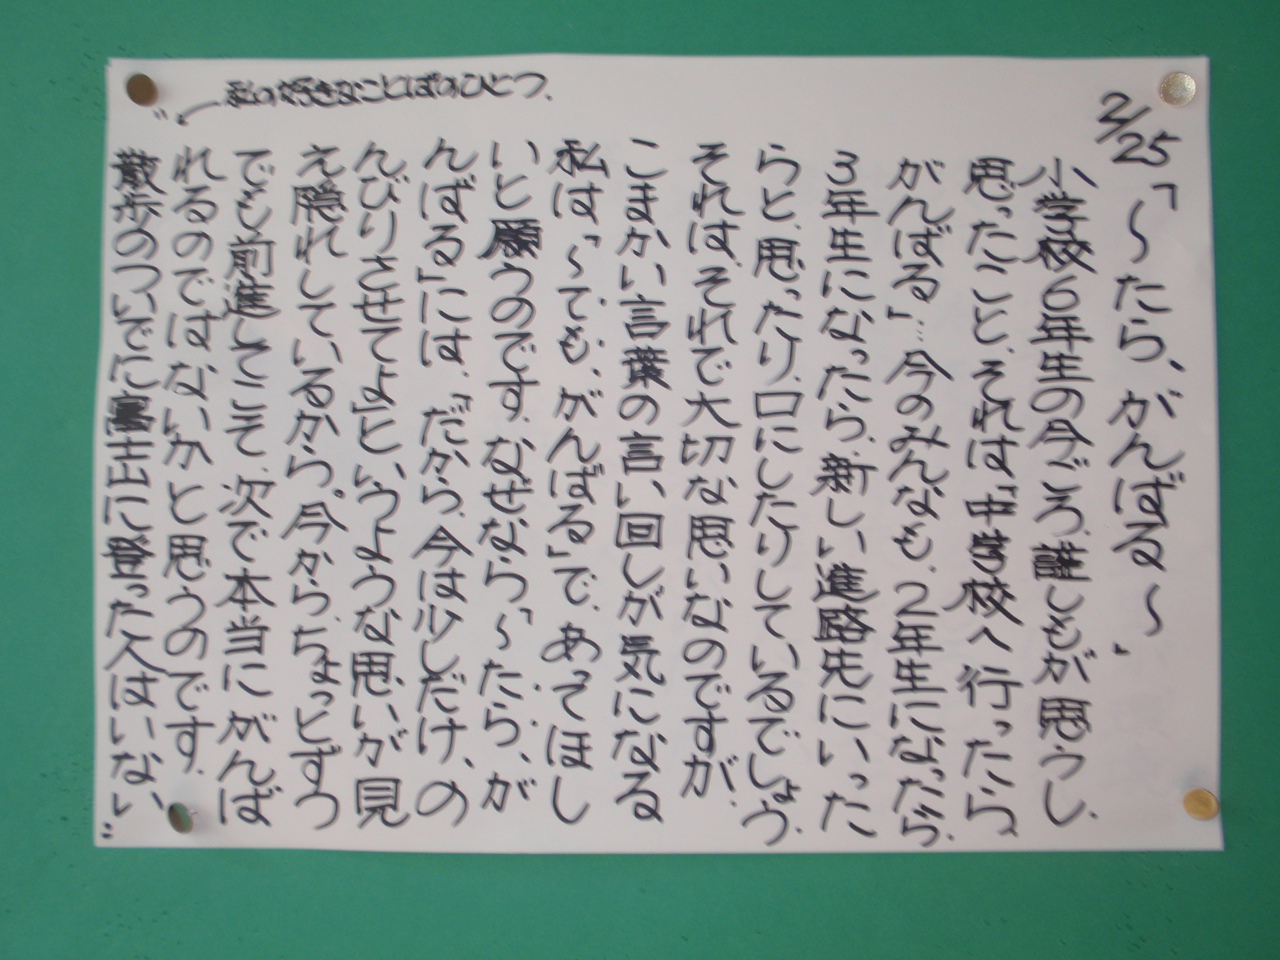 2/25
「～たら、がんばる～」
小学校6年生の今ごろ、誰しもが思うし、
思ったこと、それは「中学校へ行ったら、
がんばる」…今のみんなも、2年生になったら、
3年生になったら、新しい進路先にいった
らと、思ったり、口にしたりしているでしょう。
それは、それで大切な思いなのですが、
こまかい言葉の言い回しが気になる
私は「～ても、がんばる」で、あってほし
いと願うのです。なぜなら、「～たら、が
んばる」には、「だから、今は少しだけ、の
んびりさせてよ」と、いうような思いが見
え隠れしているから。今から、ちょっとずつ
でも前進してこそ、次で本当にがんば
れるのではないかと思うのです。
私の好きなことばのひとつ、
"散歩のついでに富士山に登った人はいない"